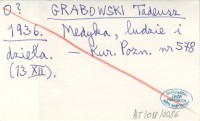 0?
GRABOWSKI Tadeusz
1936. Medyka, ludzie i
dzieła. – Kur. Pozn. nr 578
(13 XII).
BT/OB/10086